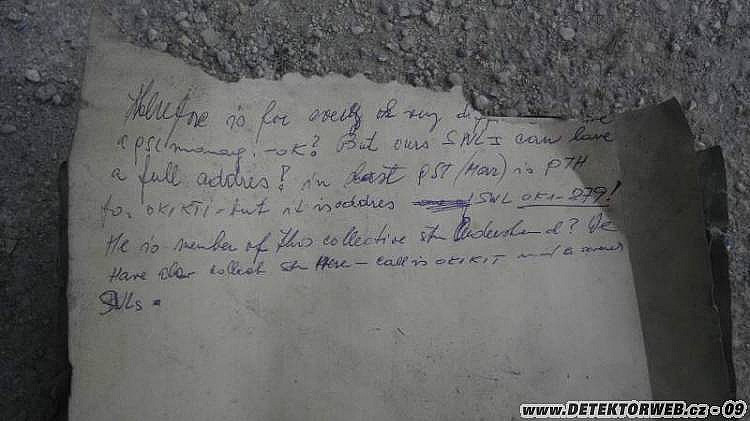 Therefore is for every ok very
manag. - OK? But ours SWLs can have
a full addres! in last PST (Mar) is PTH
for OK1KTI - but it is addres SWL OK1-279!
He is member of this collective stn Understand? We
Have also collect stn Here - call is OK1KIT
SWLs.
www.DETEKTORWEB.cz - 09